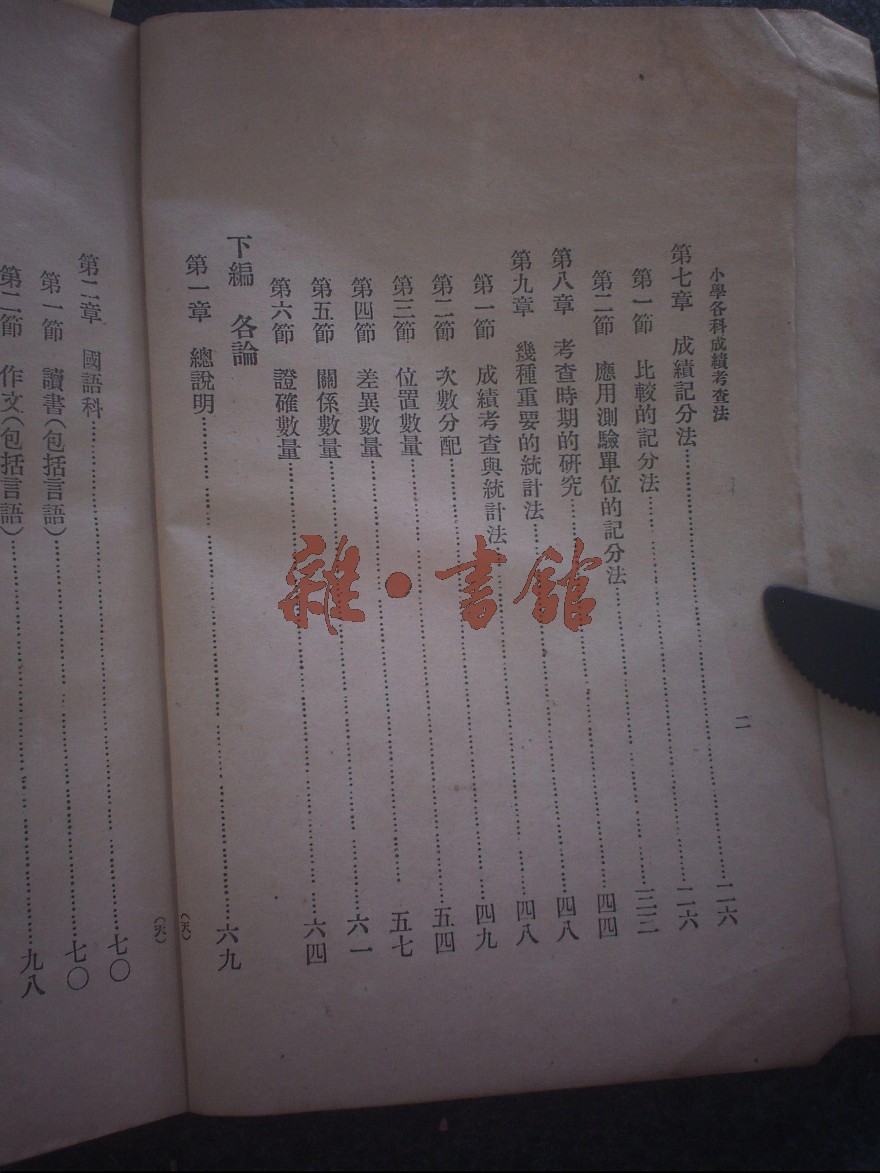 小學各科成績考查法
二
第七章 成績記分法……二六
第一節 比較的記分法……二六
第二節 應用測驗單位的記分法……三三
第八章 考查時期的研究……四四
第九章 幾種重要的統計法……四八
第一節 成績考查與統計法……四八
第二節 次數分配……四九
第三節 位置數量……五四
第四節 差異數量……五七
第五節 關係數量……六一
第六節 證確數量……六四
下編 各論
第一章 總說明……六九
第二章 國語科……七〇
第一節 讀書(包括言語)……七〇
第二節 作文(包括言語)……九八
雜·書館